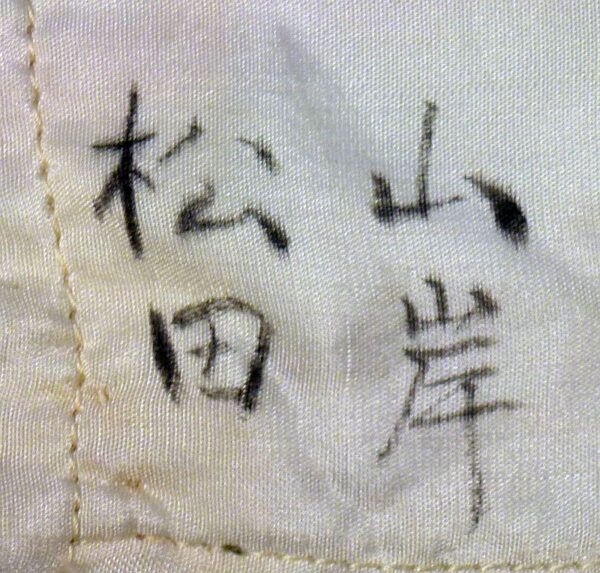 山岸
松田